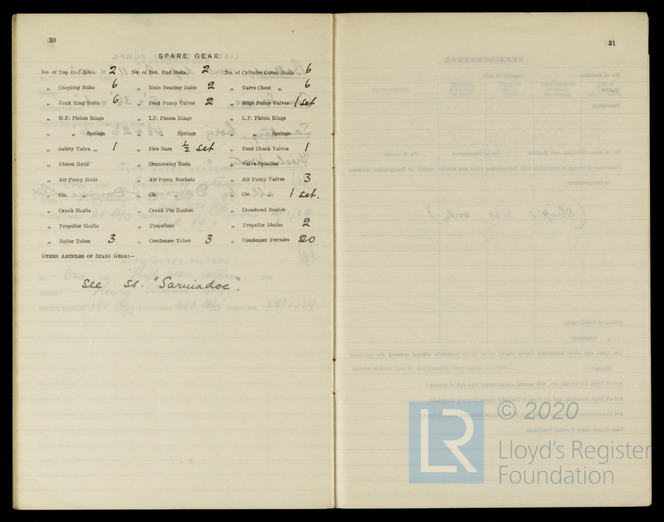 30
SPARE GEAR.
No. of Top End Bolts. 2 No. of Bot. End Bolts. 2 No. of Cylinder Cover Bolts 6
„ Coupling Bolts 6 „ Main Bearing Bolts 2 „ Valve Chest „ 6
„ Junk Ring Bolts 6 „ Feed Pump Valves 2 „ Bilge Pump Valves 1 set
„ H.P. Piston Rings „ I.P. Piston Rings „ L.P. Piston Rings
„ „ Springs „ „ Springs „ „ Springs
„ Safety Valve „ 1 „ Fire Bars ½ set „ Feed Check Valves 1
„ Piston Rods „ Connecting Rods „ Valve Spindles
„ Air Pump Rods „ Air Pump Buckets „ Air Pump Valves 3
„ Cir. „ „ Cir. „ „ Cir. „ 1 set.
„ Crank Shafts „ Crank Pin Bushes „ Crosshead Bushes
„ Propeller Shafts „ Propellers „ Propeller Blades 2
„ Boiler Tubes 3 „ Condenser Tubes 3 „ Condenser Ferrules 20
OTHER ARTICLES OF SPARE GEAR:—
See st. "Sarniadoc".
31
© 2020
LR
Lloyd's Register
Foundation